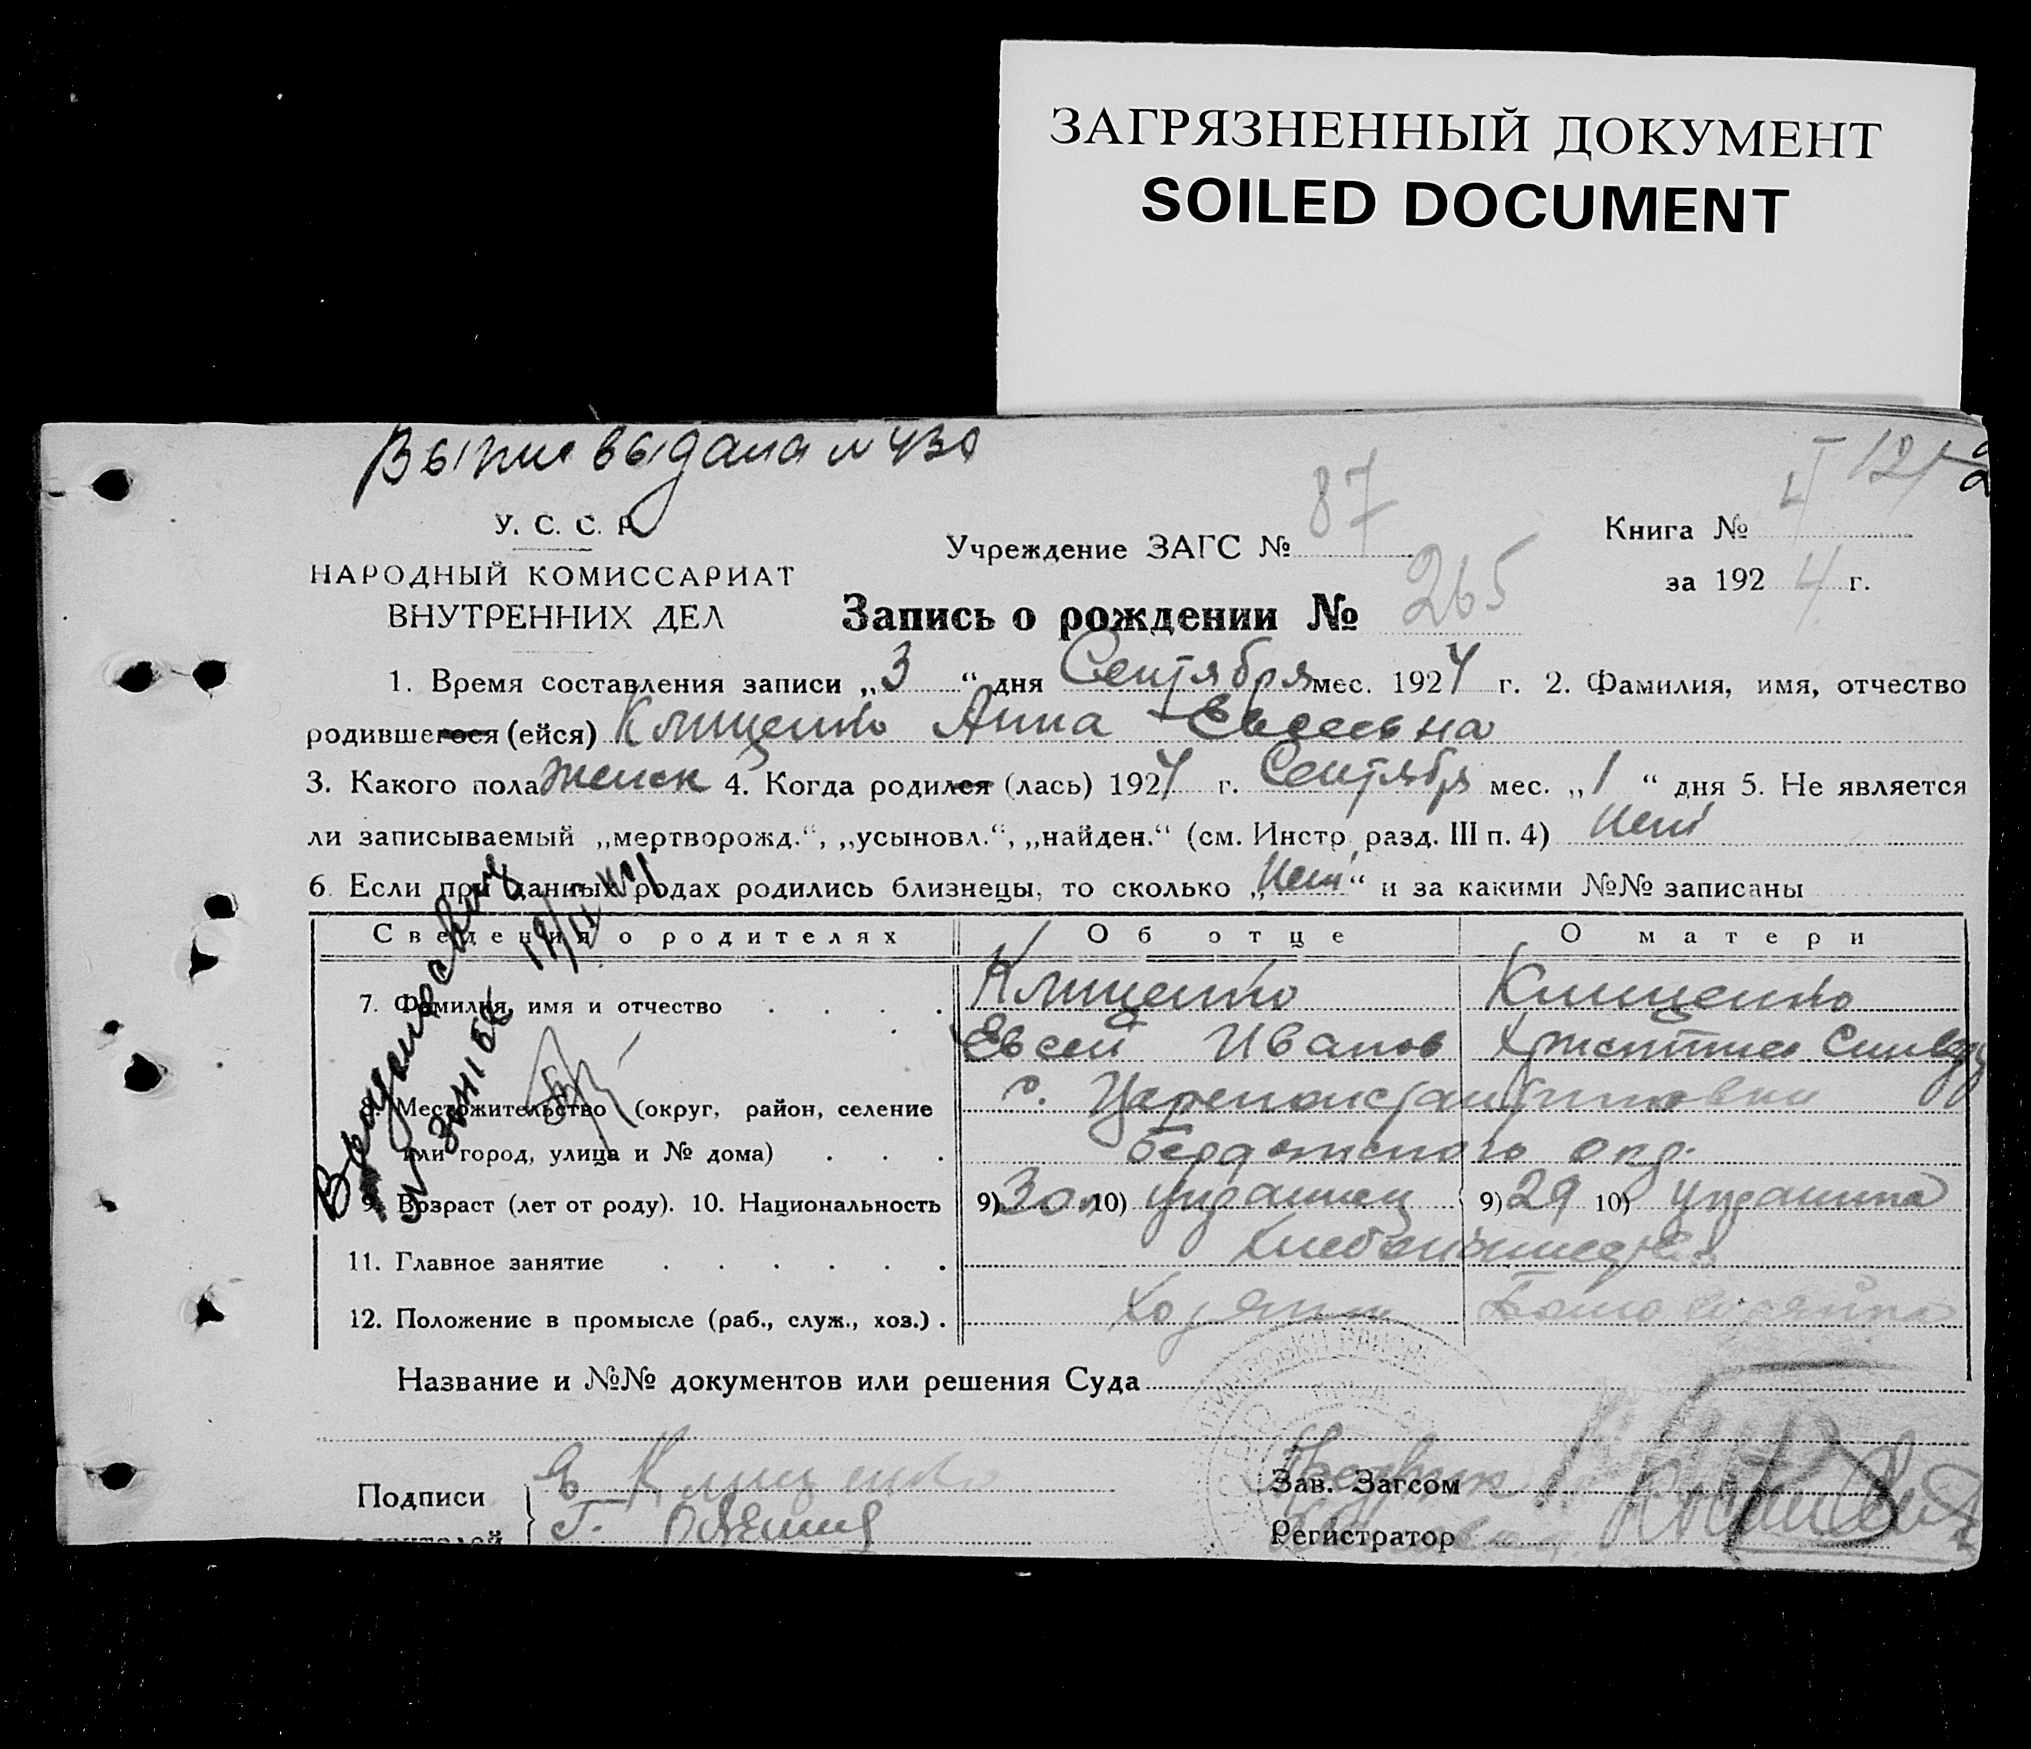 ЗАГРЯЗНЕННЫЙ ДОКУМЕНТ
SOILED DOCUMENT
выдана N 430
У. С. С. Р.
НАРОДНЫЙ КОМИССАРИАТ
ВНУТРЕННИХ ДЕЛ
Учреждение ЗАГС № 87
Книга №
за 1924 г.
Запись о рождении № 265
1. Время составления записи „3“ дня Сентября мес. 1924 г. 2. Фамилия, имя, отчество
родившегося (ейся) Клищенко Анна Евсеевна
3. Какого пола женск 4. Когда родился (лась) 1924 г. Сентября мес. „1“ дня 5. Не является
ли записываемый „мертворожд.“, „усыновл.“, „найден.“ (см. Инстр. разд. III п. 4) Нет
6. Если при данных родах родились близнецы, то сколько „Нет“ и за какими №№ записаны
Сведения о родителях Об отце О матери
7. Фамилия, имя и отчество Клищенко Клищенко
Евсей Иванов
8. Местожительство (округ, район, селение с. Цареконстантиновки
или город, улица и № дома) Бердянского окр.
9. Возраст (лет от роду). 10. Национальность 9) 30 л 10) украинец 9) 29 10) украинка
11. Главное занятие
12. Положение в промысле (раб., служ., хоз.) Хозяин
Название и №№ документов или решения Суда
Подписи Клищенко
Зав. Загсом
Регистратор